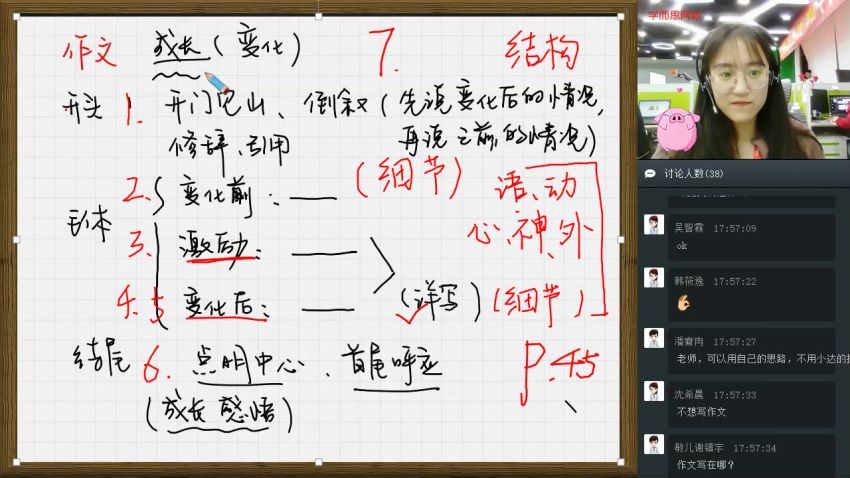 作文 成长(变化) 7. 结构
开头 1. 开门见山、倒叙(先说变化后的情况,
修辞、引用 再说之前的情况)
2. 变化前: (细节) 语、动
主体 3. 激励: 心、神、外
4.5 变化后: (详写) (细节)
结尾 6. 点明中心、首尾呼应 P.45
(成长 感悟)
学而思网校
讨论人数(38)
吴智霖 17:57:09
ok
韩筱逸 17:57:22
17:57:27
老师,可以用自己的思路,不用小达的
沈希晨 17:57:33
不想写作文
17:57:34
作文写在哪?